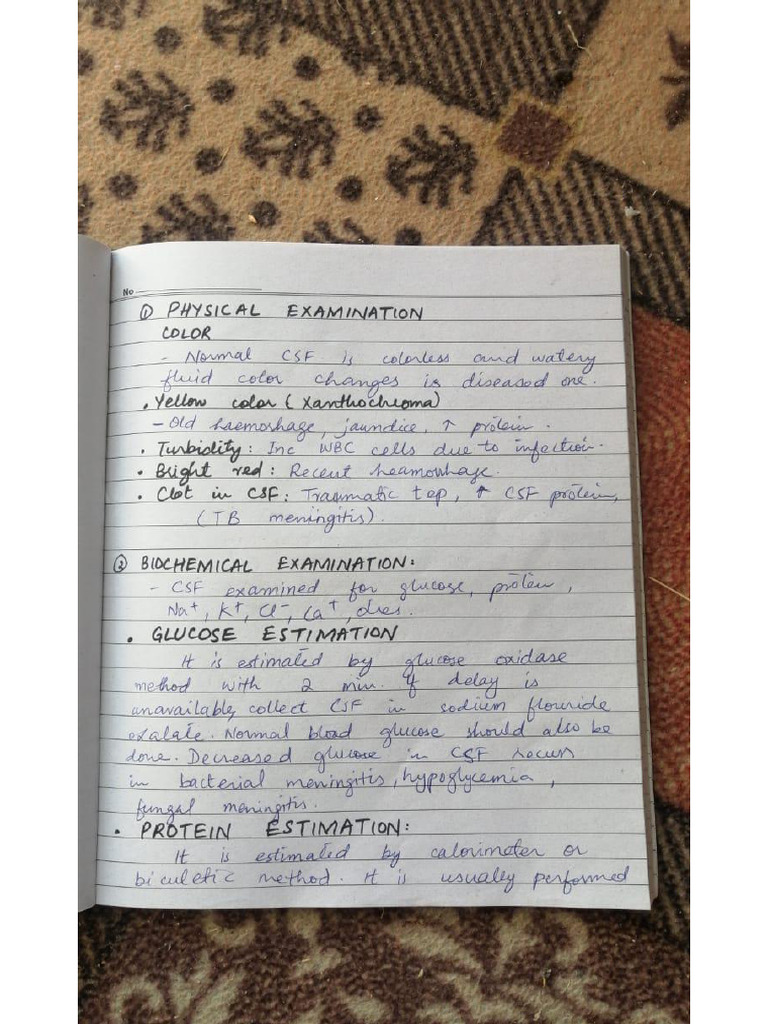 No
① PHYSICAL EXAMINATION
COLOR
- Normal CSF is colorless and watery
fluid color changes is diseased one.
• Yellow color (Xanthochroma)
- Old haemorhage, jaundice, ↑ protein.
• Turbidity: Inc WBC cells due to infection.
• Bright red: Recent heamorhage.
• Clot in CSF: Traumatic tap, ↑ CSF protein,
(TB meningitis).
② BIOCHEMICAL EXAMINATION:
- CSF examined for glucose, protein,
Na⁺, K⁺, Cl⁻, Ca⁺,
• GLUCOSE ESTIMATION
It is estimated by glucose oxidase
method with 2 min. If delay is
unavailable, collect CSF in sodium flouride
exalate. Normal blood glucose should also be
done. Decreased glucose in CSF
in bacterial meningitis, hypoglycemia,
fungal meningitis.
• PROTEIN ESTIMATION:
It is estimated by calorimeter or
method. It is usually performed